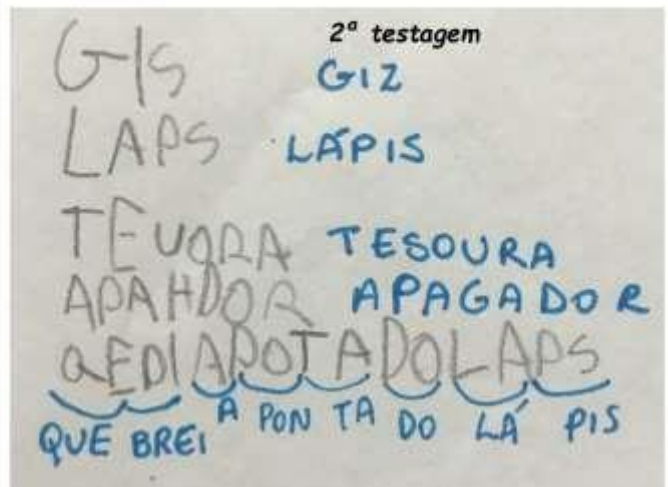 2ª testagem
GIS GIZ
LAPS LÁPIS
TEUORA TESOURA
APAHDOR APAGADOR
QEDIAPOTADOLAPS
QUE BREI A PON TA DO LÁ PIS